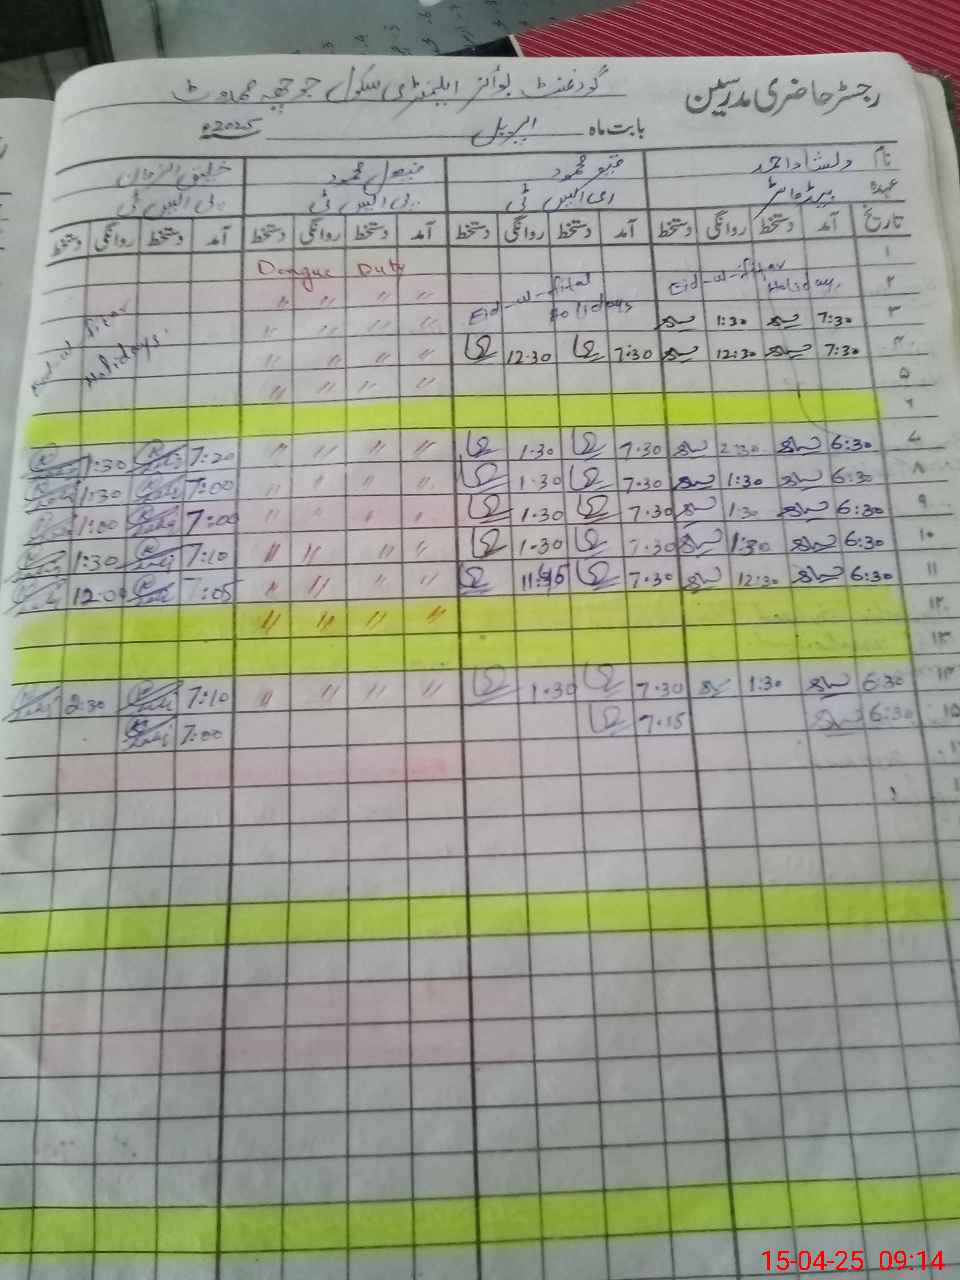 رجسٹر حاضری مدرسین گورنمنٹ بوائز ایلیمنٹری سکول
بابت ماہ اپریل 2025ء
نام دلشاد احمد محمود فیصل محمود خلیق الزمان
عہدہ ہیڈ ماسٹر ای ایس ٹی پی ایس ٹی پی ایس ٹی
تاریخ آمد دستخط روانگی دستخط آمد دستخط روانگی دستخط آمد دستخط روانگی دستخط آمد دستخط روانگی دستخط
۱ Dengue Duty
۲ Eid-ul-fitar Holiday. Eid-ul-fital Holidays " " " " Eid-ul-fitar Holidays.
۳ 7:30 1:30 " " " "
۴ 7:30 12:30 7:30 12.30 " " " "
۵ " " " "
۶
۷ 6:30 2:30 7.30 1.30 " " " " 7:20 1:30
۸ 6:30 1:30 7.30 1.30 " " " " 7:00 1:30
۹ 6:30 1:30 7.30 1.30 " " " " 7:00 1:00
۱۰ 6:30 1:30 7.30 1.30 " " " " 7:10 1:30
۱۱ 6:30 12:30 7.30 11:45 " " " " 7:05 12:0
۱۲ " " " "
۱۳
۱۴ 6:30 1:30 7.30 1.30 " " " " 7:10 2:30
۱۵ 6:30 7.15 7:00
15-04-25 09:14